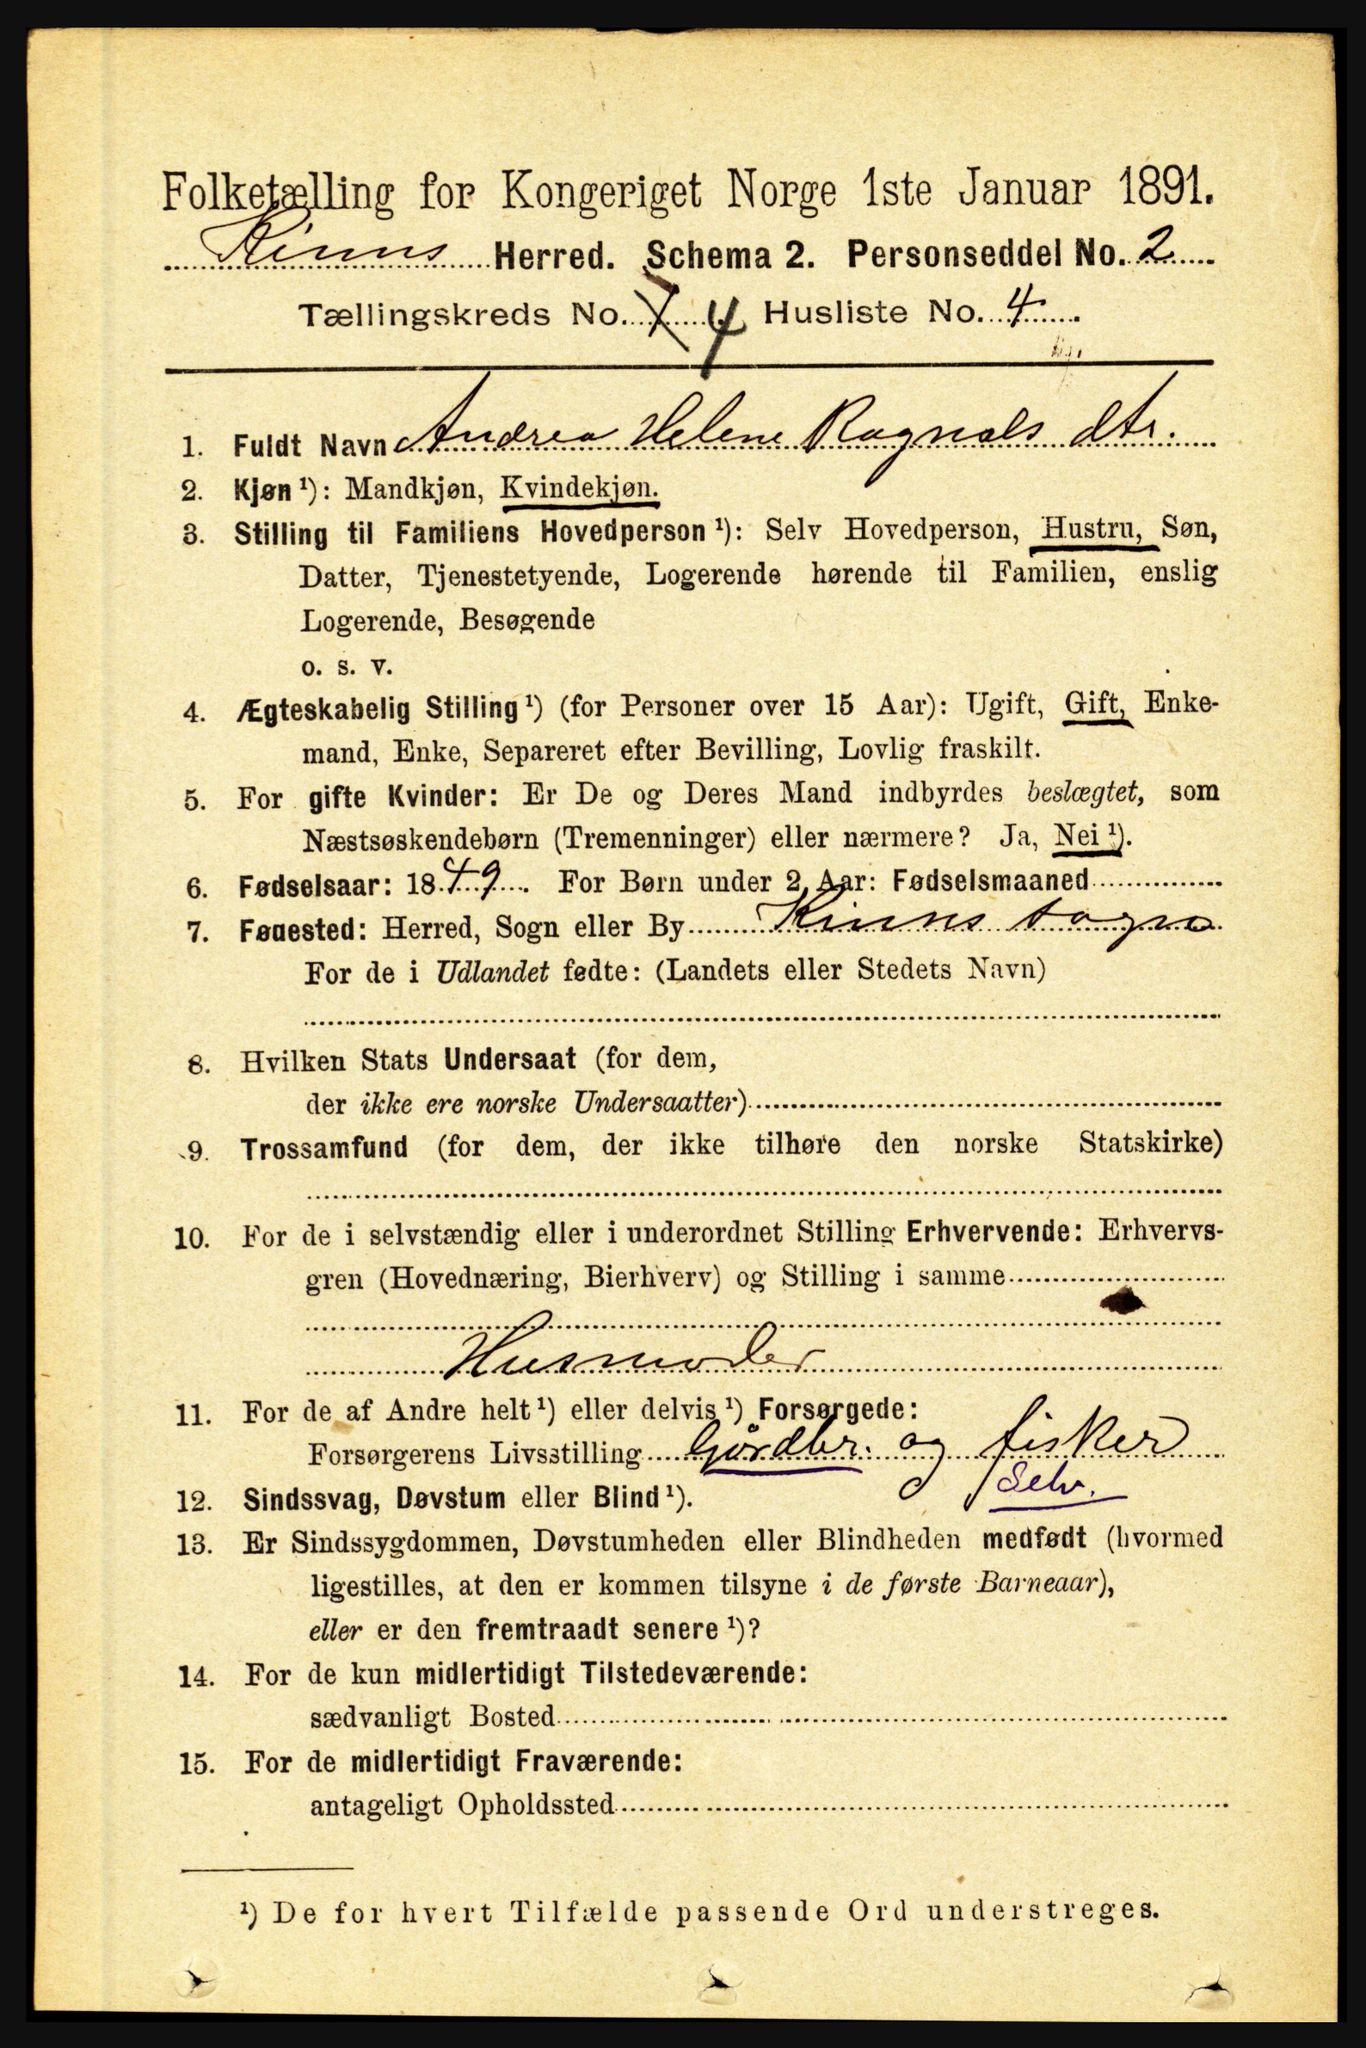 Folketælling for Kongeriget Norge 1ste Januar 1891.
Kinns Herred. Schema 2. Personseddel No. 2
Tællingskreds No. 7 4 Husliste No. 4
1. Fuldt Navn Andrea Helene Ragnals dtr.
2. Kjøn ¹): Mandkjøn, Kvindekjøn.
3. Stilling til Familiens Hovedperson ¹): Selv Hovedperson, Hustru, Søn,
Datter, Tjenestetyende, Logerende hørende til Familien, enslig
Logerende, Besøgende
o. s. v.
4. Ægteskabelig Stilling ¹) (for Personer over 15 Aar): Ugift, Gift, Enke-
mand, Enke, Separeret efter Bevilling, Lovlig fraskilt.
5. For gifte Kvinder: Er De og Deres Mand indbyrdes beslægtet, som
Næstsøskendebørn (Tremenninger) eller nærmere? Ja, Nei ¹).
6. Fødselsaar: 1849. For Børn under 2 Aar: Fødselsmaaned
7. Fødested: Herred, Sogn eller By Kinns sogn
For de i Udlandet fødte: (Landets eller Stedets Navn)
8. Hvilken Stats Undersaat (for dem,
der ikke ere norske Undersaatter)
9. Trossamfund (for dem, der ikke tilhøre den norske Statskirke)
10. For de i selvstændig eller i underordnet Stilling Erhvervende: Erhvervs-
gren (Hovednæring, Bierhverv) og Stilling i samme
Husmoder
11. For de af Andre helt ¹) eller delvis ¹) Forsørgede:
Forsørgerens Livsstilling Gårdbr. og fisker
Selv.
12. Sindssvag, Døvstum eller Blind ¹).
13. Er Sindssygdommen, Døvstumheden eller Blindheden medfødt (hvormed
ligestilles, at den er kommen tilsyne i de første Barneaar),
eller er den fremtraadt senere ¹)?
14. For de kun midlertidigt Tilstedeværende:
sædvanligt Bosted
15. For de midlertidigt Fraværende:
antageligt Opholdssted
¹) De for hvert Tilfælde passende Ord understreges.